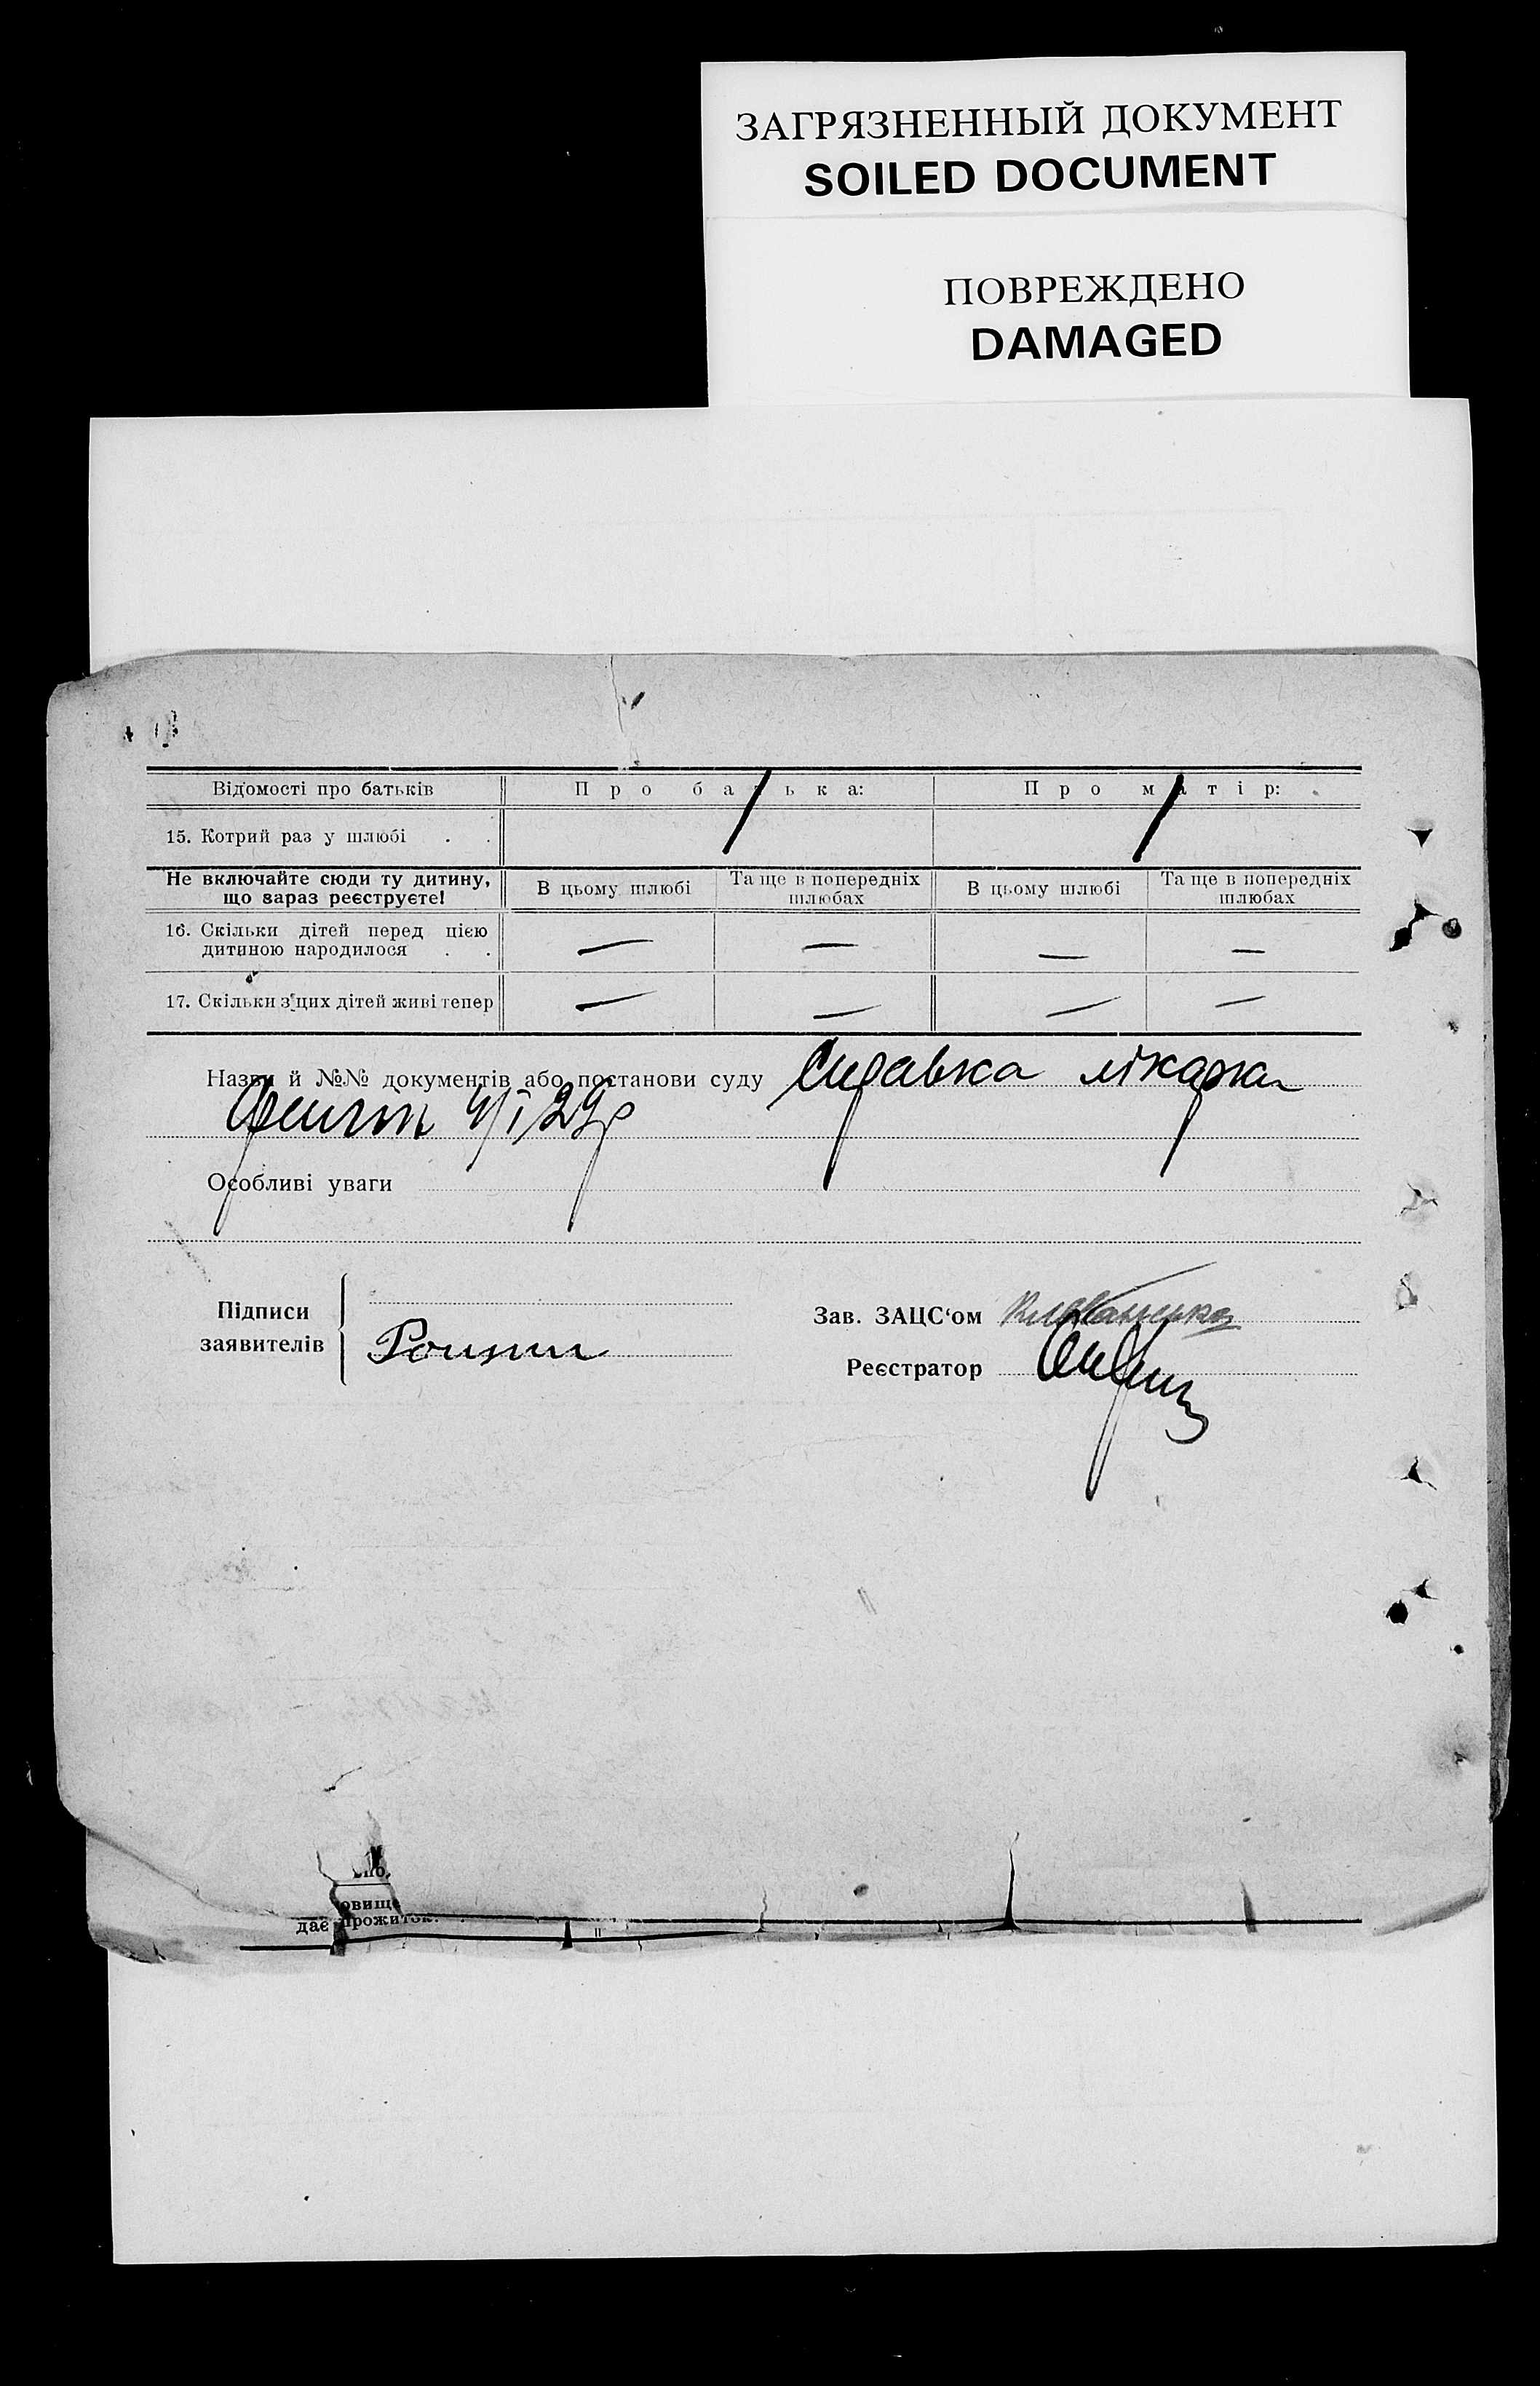 ЗАГРЯЗНЕННЫЙ ДОКУМЕНТ
SOILED DOCUMENT
ПОВРЕЖДЕНО
DAMAGED
Відомості про батьків Про батька: Про матір:
15. Котрий раз у шлюбі . . / /
Не включайте сюди ту дитину, що зараз реєструєте! В цьому шлюбі Та ще в попередніх шлюбах В цьому шлюбі Та ще в попередніх шлюбах
16. Скільки дітей перед цією дитиною народилося . . — — — —
17. Скільки з цих дітей живі тепер — — — —
Назви й №№ документів або постанови суду Справка лікарка
4/I 29р
Особливі уваги
Підписи заявителів
Зав. ЗАЦС‘ом
Реєстратор
овище
дає прожиток.